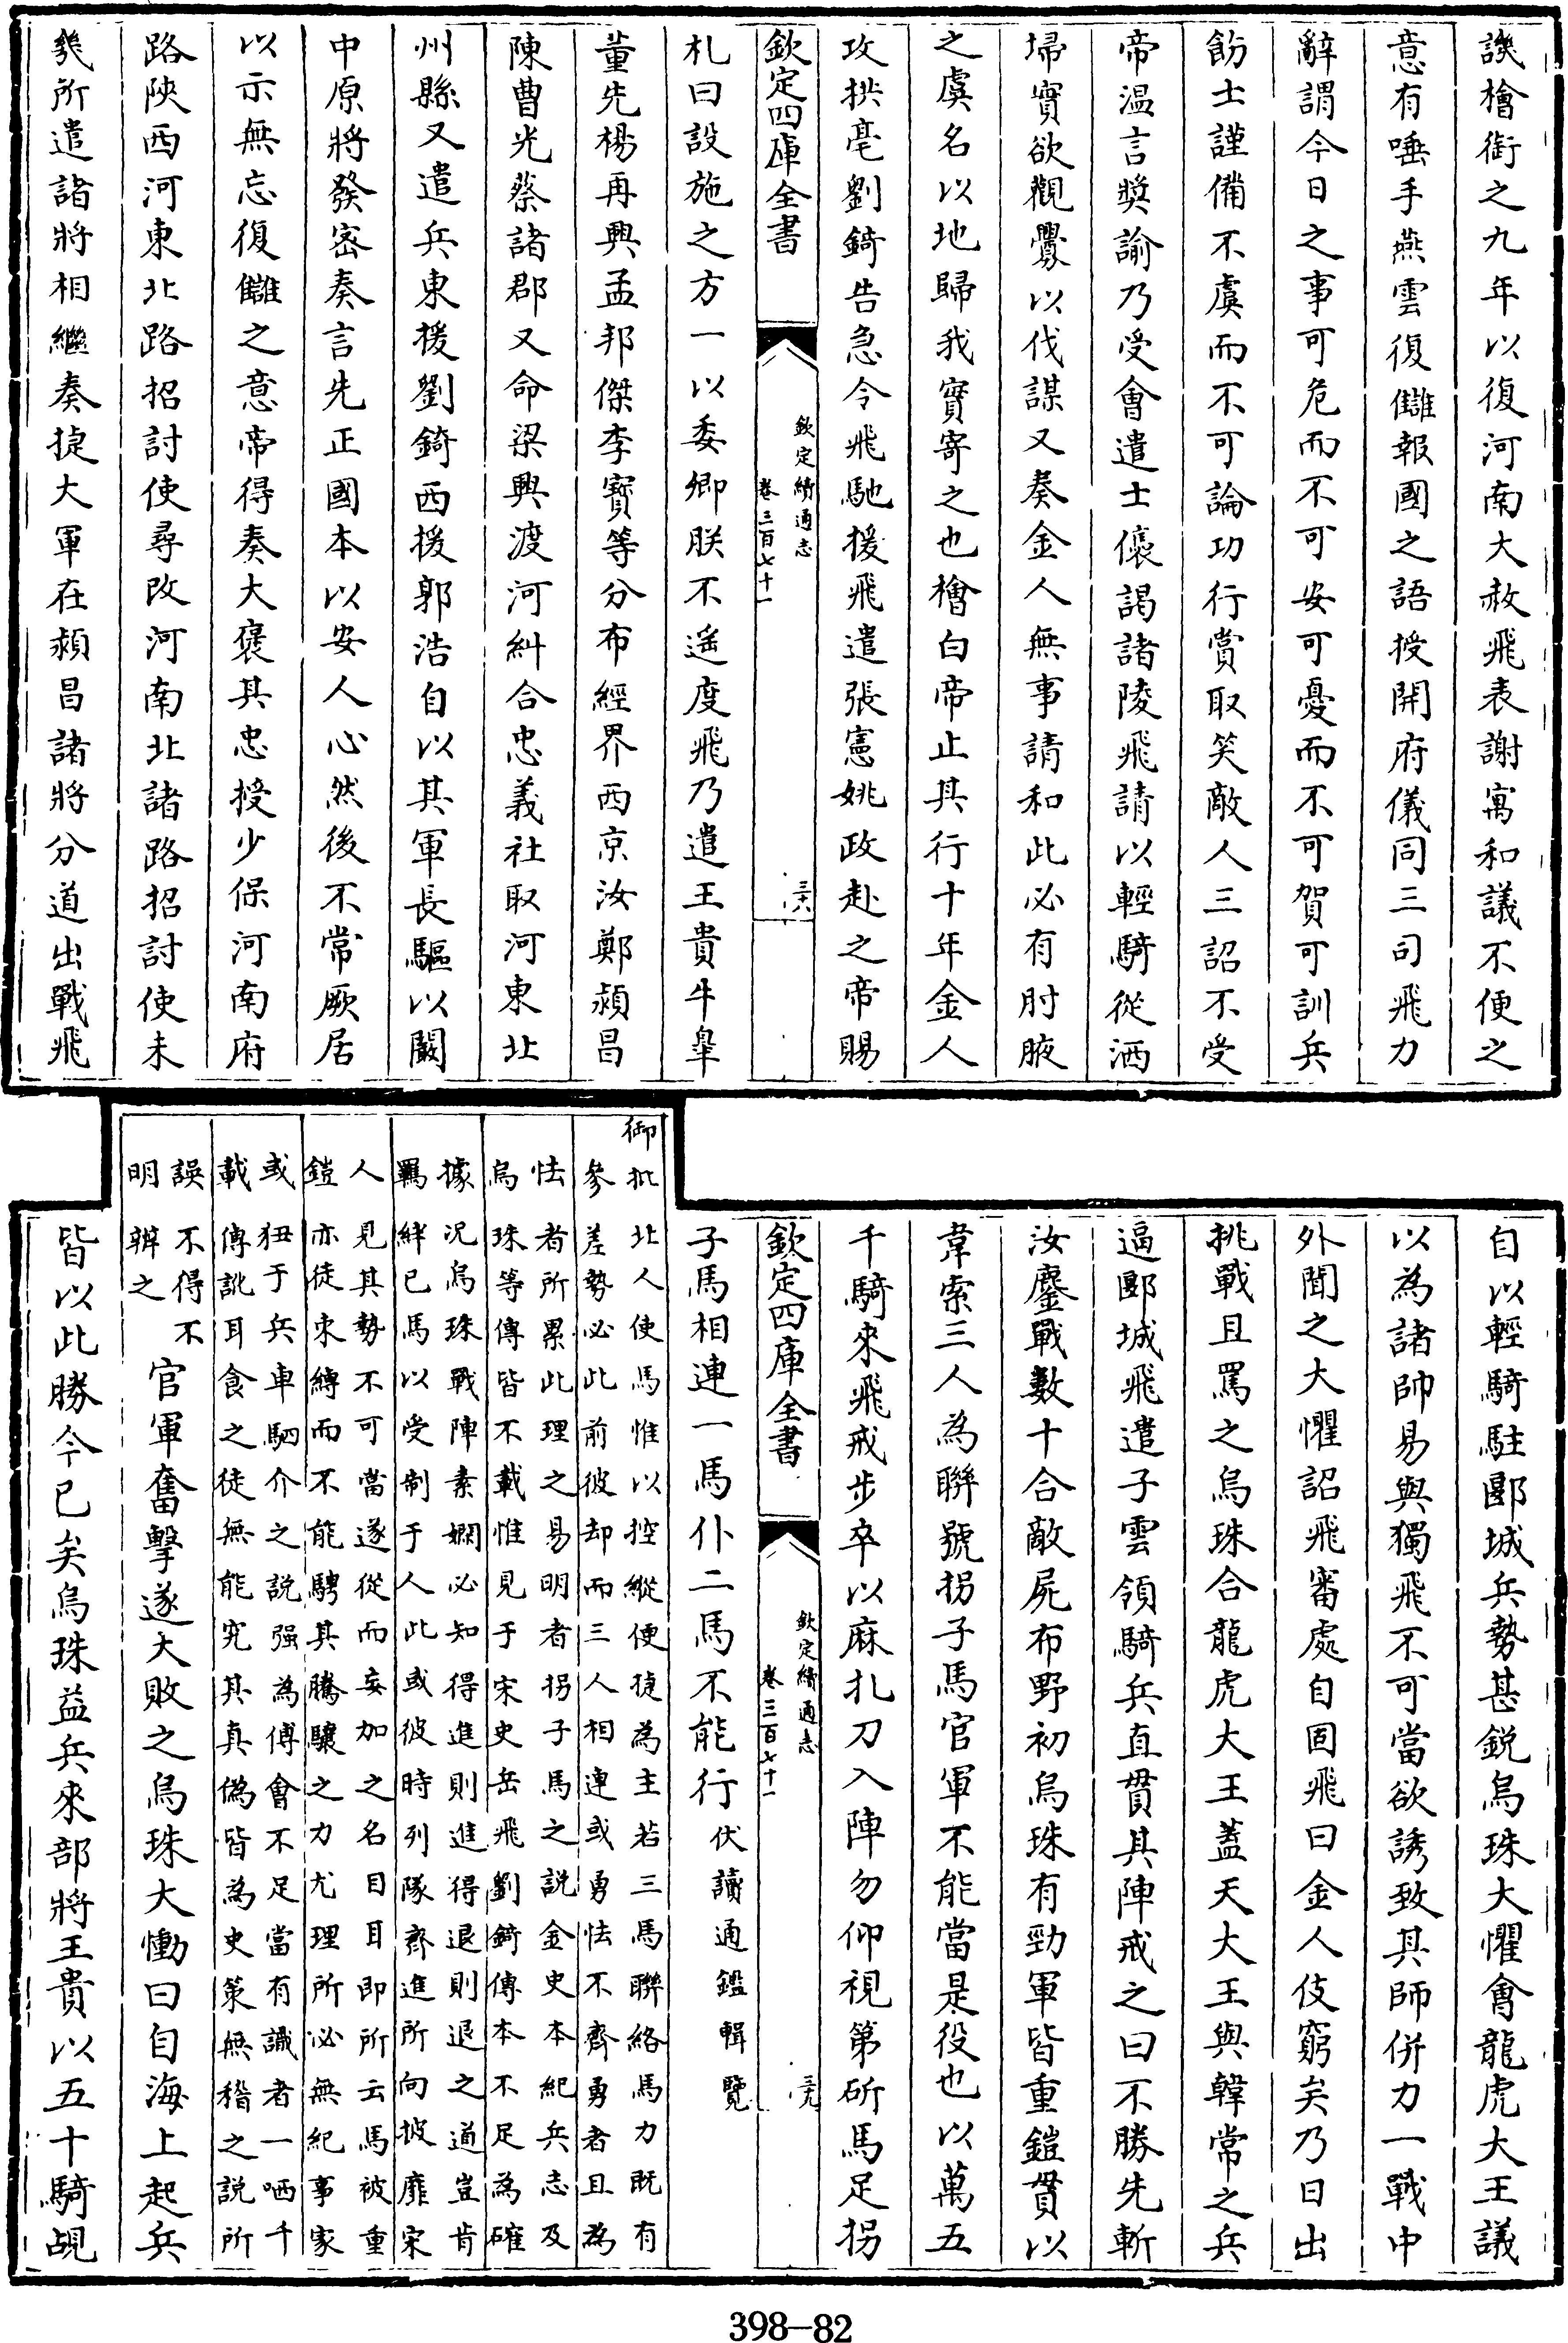 譏檜銜之九年以復河南大赦飛表謝寓和議不便之
意有唾手燕雲復讎報國之語授開府儀同三司飛力
辭謂今日之事可危而不可安可憂而不可賀可訓兵
飭士謹備不虞而不可論功行賞取笑敵人三詔不受
帝温言奬諭乃受會遣士㒟謁諸陵飛請以輕騎從洒
埽實欲觀釁以伐謀又奏金人無事請和此必有肘腋
之虞名以地歸我實寄之也檜白帝止其行十年金人
攻拱亳劉錡告急令飛馳援飛遣張憲姚政赴之帝賜
欽定四庫全書
欽定續通志
卷三百七十一
三六
札曰設施之方一以委卿朕不遥度飛乃遣王貴牛臯
董先楊再興孟邦傑李寳等分布經界西京汝鄭潁昌
陳曹光蔡諸郡又命梁興渡河糾合忠義社取河東北
州縣又遣兵東援劉錡西援郭浩自以其軍長驅以闞
中原將發密奏言先正國本以安人心然後不常厥居
以示無忘復讎之意帝得奏大褒其忠授少保河南府
路陝西河東北路招討使尋改河南北諸路招討使未
幾所遣諸將相繼奏捷大軍在潁昌諸將分道出戰飛
自以輕騎駐郾城兵勢甚銳烏珠大懼會龍虎大王議
以為諸帥易與獨飛不可當欲誘致其師併力一戰中
外聞之大懼詔飛審處自固飛曰金人伎窮矣乃日出
挑戰且罵之烏珠合龍虎大王蓋天大王與韓常之兵
逼郾城飛遣子雲領騎兵直貫其陣戒之曰不勝先斬
汝鏖戰數十合敵屍布野初烏珠有勁軍皆重鎧貫以
韋索三人為聯號拐子馬官軍不能當是役也以萬五
千騎來飛戒步卒以麻扎刀入陣勿仰視第斫馬足拐
欽定四庫全書
欽定續通志
卷三百七十一
三九
子馬相連一馬仆二馬不能行伏讀通鑑輯覽
御批北人使馬惟以控縱便捷為主若三馬聯絡馬力既有
參差勢必此前彼却而三人相連或勇怯不齊勇者且為
怯者所累此理之易明者拐子馬之説金史本紀兵志及
烏珠等傳皆不載惟見于宋史岳飛劉錡傳本不足為確
據况烏珠戰陣素嫻必知得進則進得退則退之道豈肯
羈絆已馬以受制于人此或彼時列隊齊進所向披靡宋
人見其勢不可當遂從而妄加之名目耳即所云馬被重
鎧亦徒束縛而不能騁其騰驤之力尤理所必無紀事家
或狃于兵車駟介之説强為傅會不足當有識者一哂千
載傳訛耳食之徒無能究其真偽皆為史策無稽之説所
誤不得不
明辨之
官軍奮擊遂大敗之烏珠大慟曰自海上起兵
皆以此勝今已矣烏珠益兵來部將王貴以五十騎覘
398-82